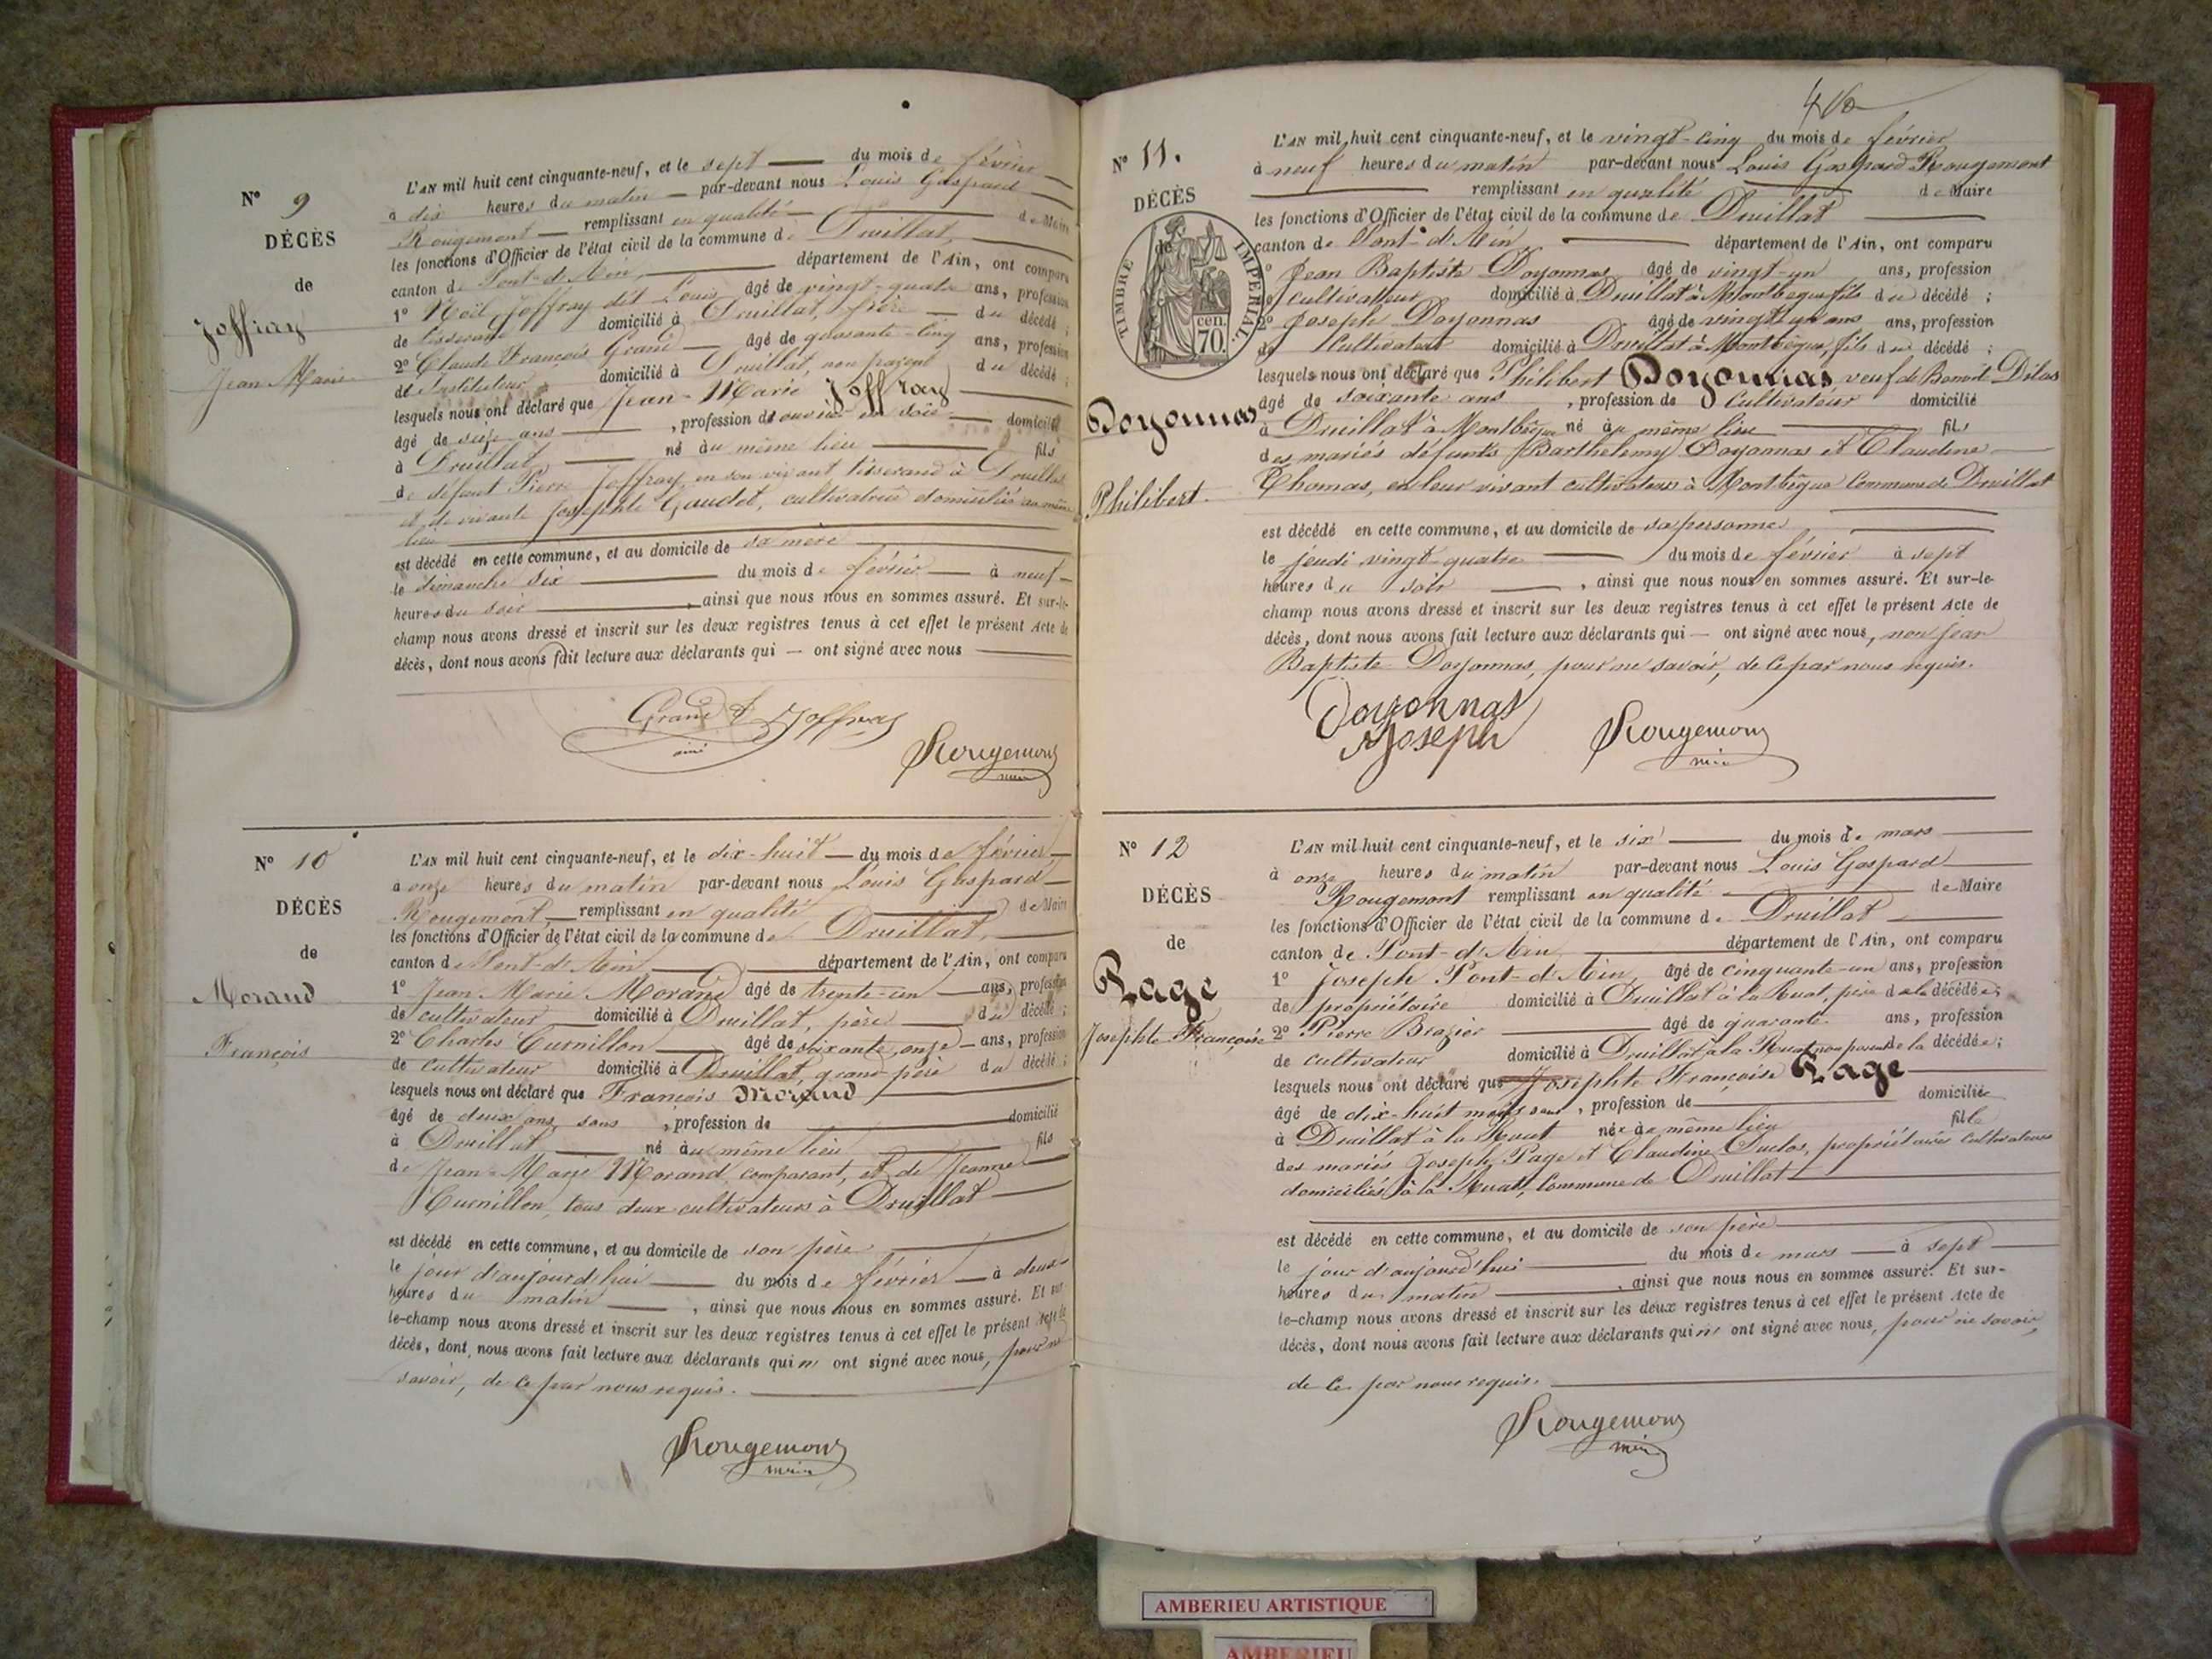 N° 9
DÉCÈS
de
Joffray
Jean Marie
L'AN mil huit cent cinquante-neuf, et le sept du mois de février
à dix heures du matin par-devant nous Louis Gaspard
Rougemont remplissant en qualité de Maire
les fonctions d'Officier de l'état civil de la commune de Druillat,
canton de Pont-d'Ain, département de l'Ain, ont comparu
1° Noël Joffray dit Louis âgé de vingt-quatre ans, profession
de tisserand domicilié à Druillat, frère du décédé;
2° Claude François Grand âgé de quarante-cinq ans, profession
de Instituteur domicilié à Druillat, non parent du décédé;
lesquels nous ont déclaré que Jean-Marie Joffray
âgé de seize ans, profession de ouvrier en soie domicilié
à Druillat, né au même lieu fils
de défunt Pierre Joffray en son vivant tisserand à Druillat
et de vivante Josephte Gaudet, cultivatrice domiciliée au même
lieu
est décédé en cette commune, et au domicile de sa mère
le dimanche six du mois de février à neuf
heures du soir, ainsi que nous nous en sommes assuré. Et sur-le-
champ nous avons dressé et inscrit sur les deux registres tenus à cet effet le présent Acte de
décès, dont nous avons fait lecture aux déclarants qui — ont signé avec nous
Grand Joffray
Rougemont
N° 10
DÉCÈS
de
Morand
François
L'AN mil huit cent cinquante-neuf, et le dix-huit du mois de février
à onze heures du matin par-devant nous Louis Gaspard
Rougemont, remplissant en qualité de Maire
les fonctions d'Officier de l'état civil de la commune de Druillat,
canton de Pont-d'Ain département de l'Ain, ont comparu
1° Jean Marie Morand âgé de trente-un ans, profession
de cultivateur domicilié à Druillat, père du décédé;
2° Charles Curnillon âgé de soixante onze ans, profession
de cultivateur domicilié à Druillat, grand père du décédé;
lesquels nous ont déclaré que François Morand
âgé de deux ans sans, profession de domicilié
à Druillat né au même lieu fils
de Jean-Marie Morand, comparant, et de Jeanne
Curnillon, tous deux cultivateurs à Druillat
est décédé en cette commune, et au domicile de son père
le jour d'aujourd'hui du mois de février à deux
heures du matin, ainsi que nous nous en sommes assuré. Et sur
le-champ nous avons dressé et inscrit sur les deux registres tenus à cet effet le présent Acte de
décès, dont nous avons fait lecture aux déclarants qui n' ont signé avec nous, pour ne
savoir, de ce par nous requis.
Rougemont
N° 11.
DÉCÈS
de
TIMBRE IMPERIAL
cen.
70.
Doyonnas
Philibert.
L'AN mil huit cent cinquante-neuf, et le vingt-cinq du mois de février
à neuf heures du matin par-devant nous Louis Gaspard Rougemont
remplissant en qualité de Maire
les fonctions d'Officier de l'état civil de la commune de Druillat
canton de Pont-d'Ain département de l'Ain, ont comparu
1° Jean Baptiste Doyonnas âgé de vingt-un ans, profession
de cultivateur domicilié à Druillat à Montbègue fils du décédé;
2° Joseph Doyonnas âgé de vingt un ans ans, profession
de Cultivateur domicilié à Druillat à Montbègue, fils du décédé;
lesquels nous ont déclaré que Philibert Doyonnas veuf de Benoit
âgé de soixante ans, profession de Cultivateur domicilié
à Druillat à Montbègue né au même lieu fils
des mariés défunts Barthelemy Doyonnas et Claudine
Thomas, en leur vivant cultivateurs à Montbègue Commune de Druillat
est décédé en cette commune, et au domicile de sa personne
le jeudi vingt-quatre du mois de février à sept
heures du soir, ainsi que nous nous en sommes assuré. Et sur-le-
champ nous avons dressé et inscrit sur les deux registres tenus à cet effet le présent Acte de
décès, dont nous avons fait lecture aux déclarants qui — ont signé avec nous, non jean
Baptiste Doyonnas, pour ne savoir, de ce par nous requis.
Doyonnas
Joseph
Rougemont
N° 12
DÉCÈS
de
Page
Josephte Françoise
L'AN mil huit cent cinquante-neuf, et le six du mois de mars
à onze heures du matin par-devant nous Louis Gaspard
Rougemont remplissant en qualité de Maire
les fonctions d'Officier de l'état civil de la commune de Druillat
canton de Pont-d'Ain département de l'Ain, ont comparu
1° Joseph Pont-d'Ain, âgé de cinquante-un ans, profession
de propriétaire domicilié à Druillat à la Ruat, père de la décédée;
2° Pierre Brazier âgé de quarante ans, profession
de cultivateur domicilié à Druillat à la Ruat non parent de la décédée;
lesquels nous ont déclaré que Josephte Françoise Page
âgé de dix-huit mois, profession de domiciliée
à Druillat à la Ruat née au même lieu fille
des mariés Joseph Page et Claudine Duclos, propriétaires cultivateurs
domiciliés à la Ruat, Commune de Druillat
est décédé en cette commune, et au domicile de son père
le jour d'aujourd'hui du mois de mars à sept
heures du matin, ainsi que nous nous en sommes assuré. Et sur-
le-champ nous avons dressé et inscrit sur les deux registres tenus à cet effet le présent Acte de
décès, dont nous avons fait lecture aux déclarants qui n' ont signé avec nous, pour ne savoir,
de ce par nous requis.
Rougemont
AMBERIEU ARTISTIQUE
AMBERIEU